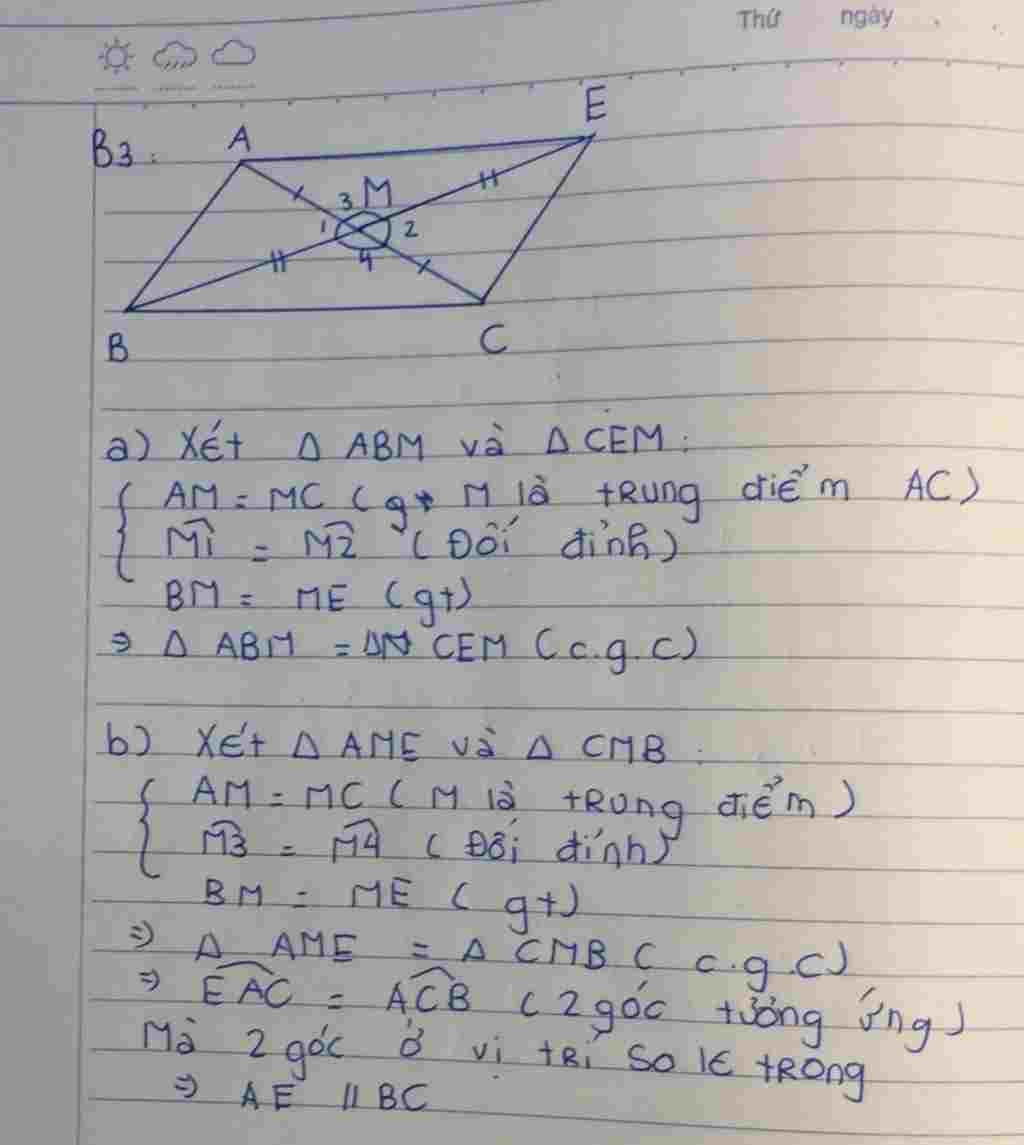 Thứ ngày
B3: A E
3 M
1 2
4
B C
a) Xét Δ ABM và Δ CEM:
{ AM = MC (gt M là trung điểm AC)
M̂1 = M̂2 (Đối đỉnh)
BM = ME (gt)
⇒ Δ ABM = Δ CEM (c.g.c)
b) Xét Δ AME và Δ CMB:
{ AM = MC (M là trung điểm)
M̂3 = M̂4 (Đối đính)
BM = ME (gt)
⇒ Δ AME = Δ CMB (c.g.c)
⇒ EAC = ACB (2 góc tưởng ứng)
Mà 2 góc ở vị trí so le trong
⇒ AE // BC